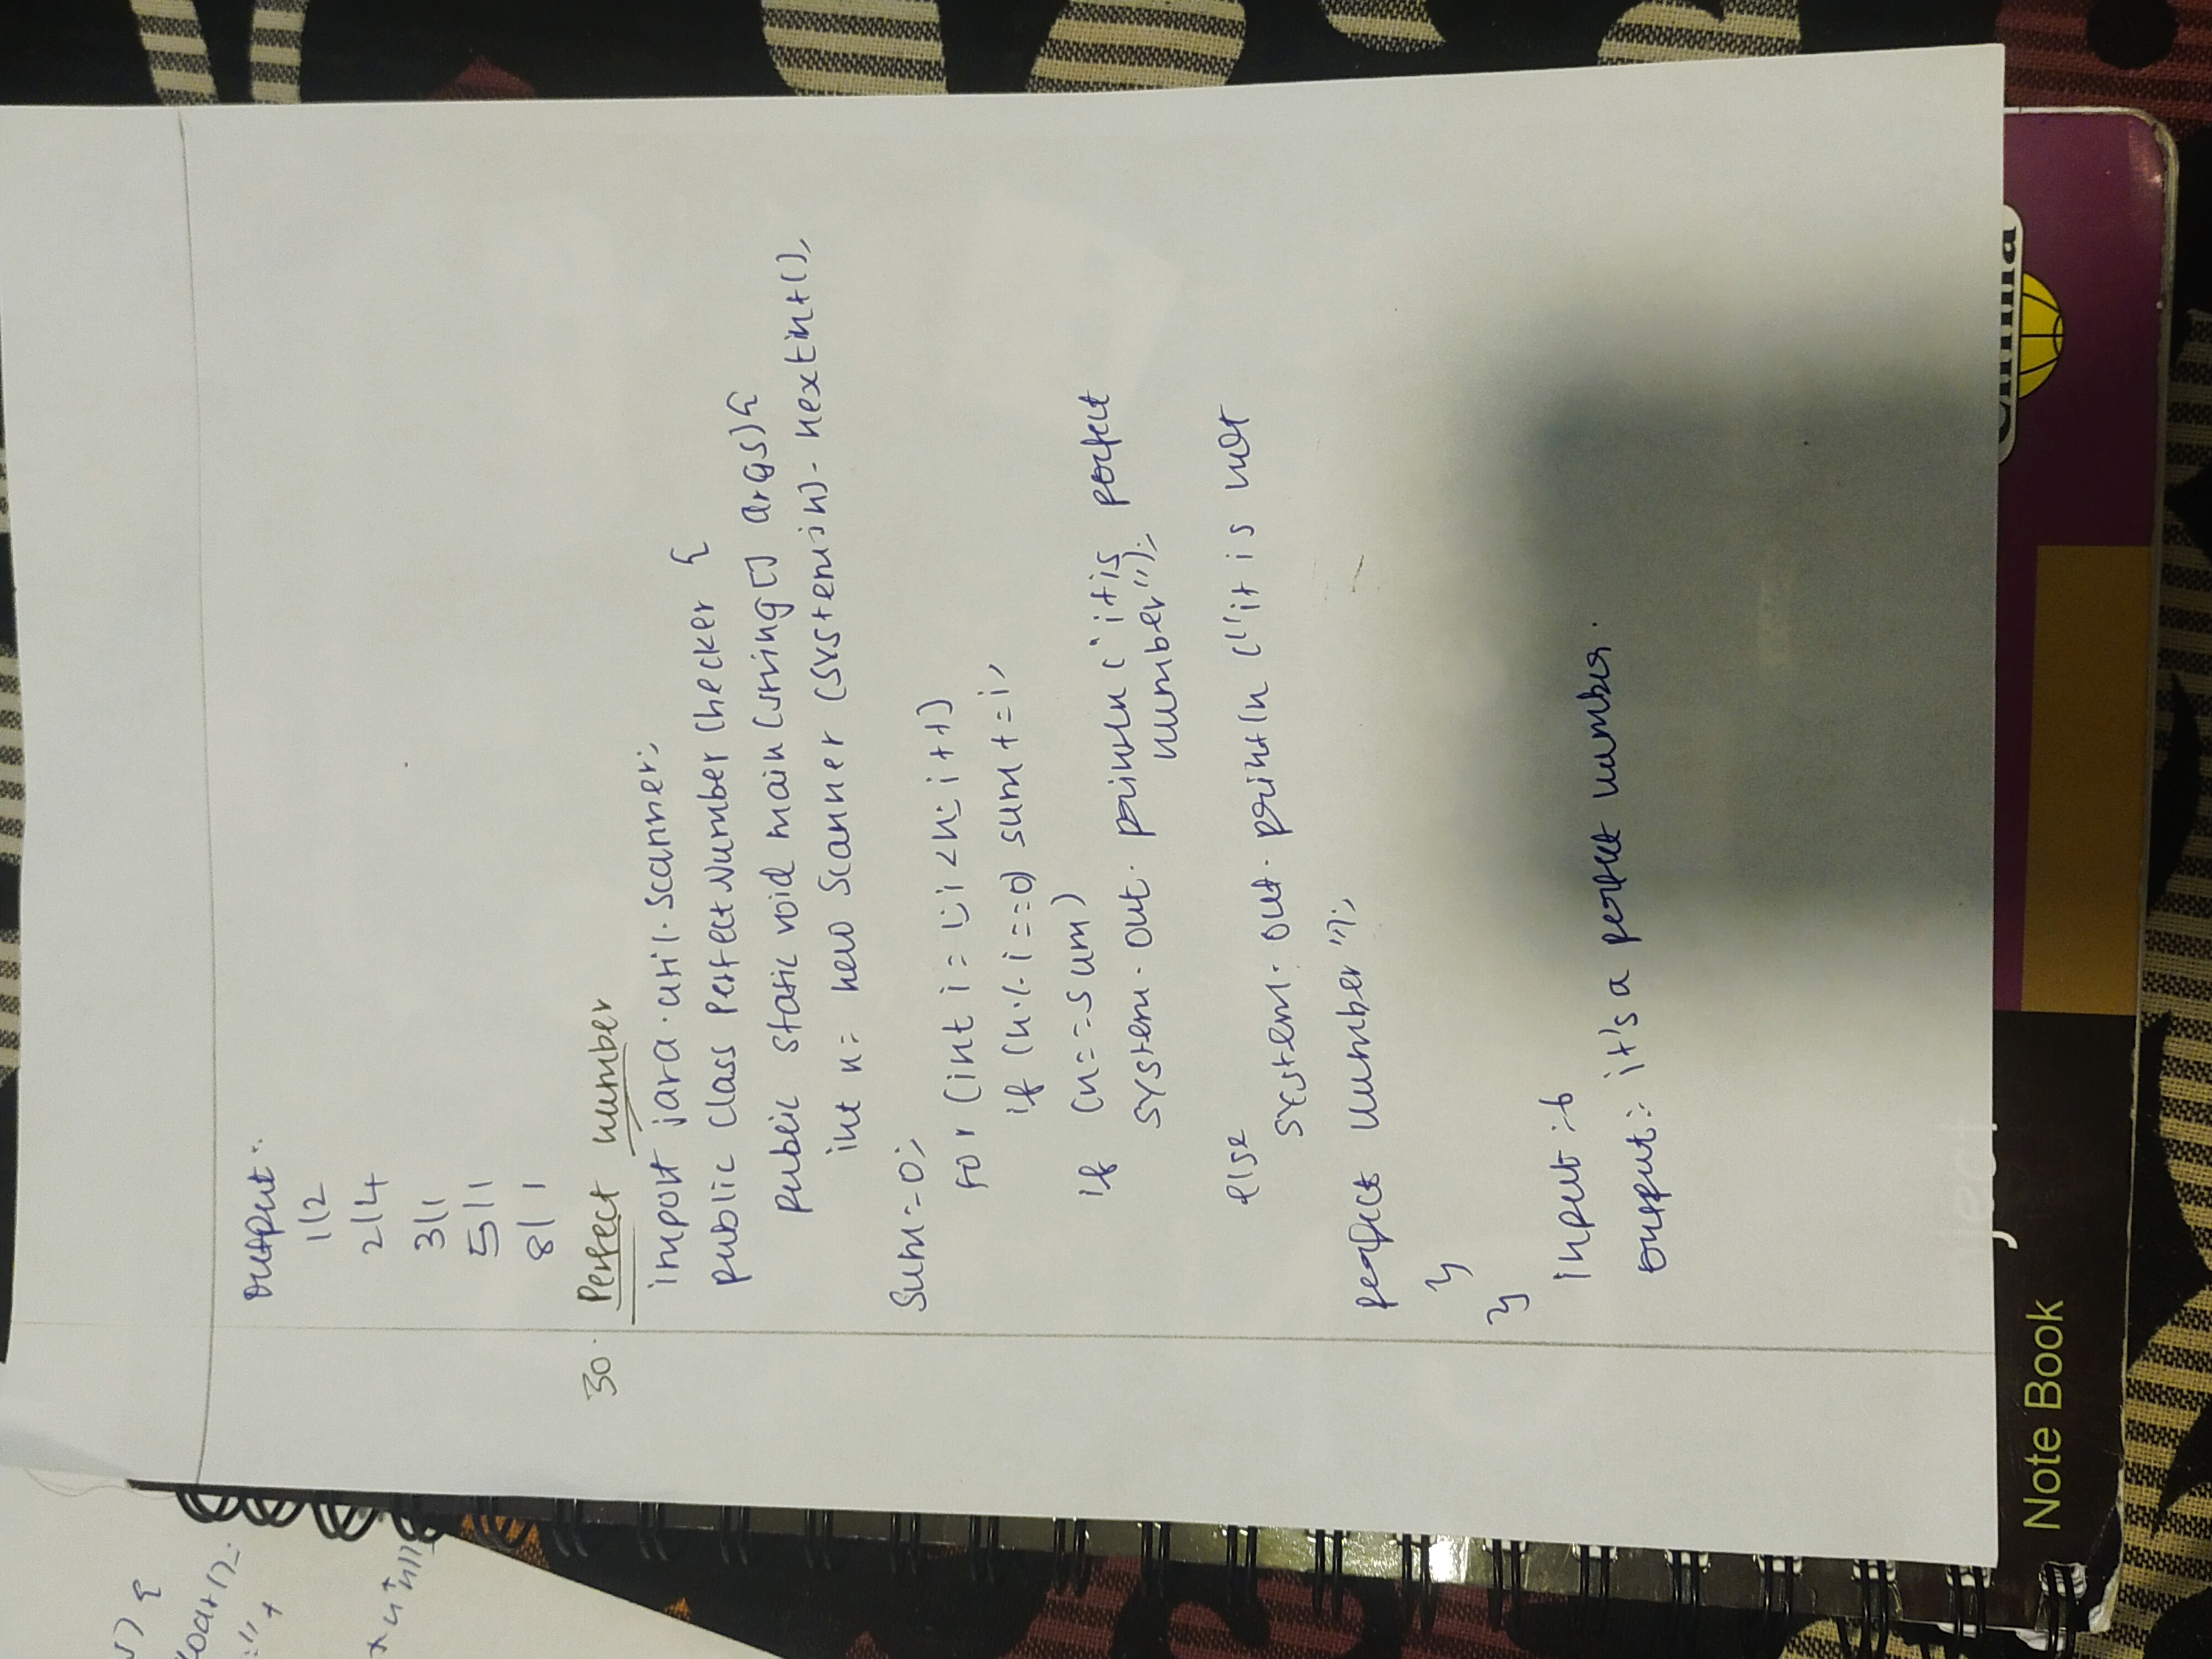 s) {
:"+
Output:
1|2
2|4
3|1
5|1
8|1
30. Perfect number
import java.util.Scanner;
public class PerfectNumberChecker {
public static void main (string[] args){
int n = new Scanner (System.in). nextint(),
Sum=0;
for (int i = 1; i<n; i++)
if (n % i ==0) sum += i,
if (n==sum)
system.out.println ("it is perfect
number");
else
system.out.println ("it is not
perfect number");
}
}
input:-6
output:- it's a perfect number.
ject
Note Book